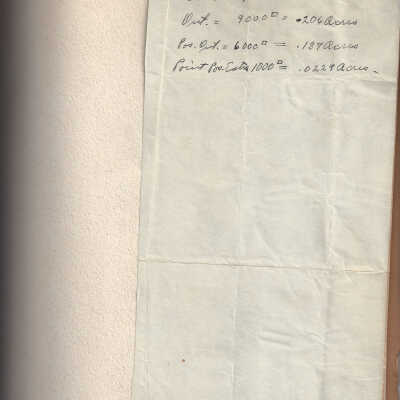 Out. = 9000□ = .206 Acres
Pos. Out. = 6000□ = .137 Acres
Point Pos. Extra 1000□ = .0229 Acres.